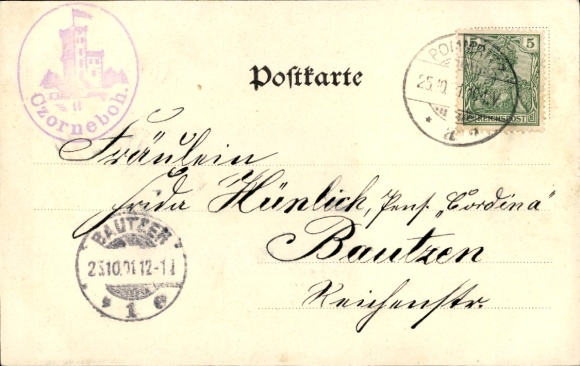 Czorneboh.
Postkarte
5
REICHSPOST
Fräulein
Frida Hünlich, Pens. „Cordina"
Bautzen
Reichenstr.
BAUTZEN
25.10.01.12-1
* 1 c